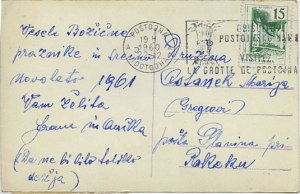 Vesele Božične
praznike in srečno
novo leto 1961
Vam želita
in Anitka
(Da ne bi bilo toliko
dežja)
POSTOJNA
1960
POSTOJNA
VISITEZ
LA GROTTE DE POSTOJNA
15
Družina
Marija
(Gregovi)
pošta Planina pri
Rakeku